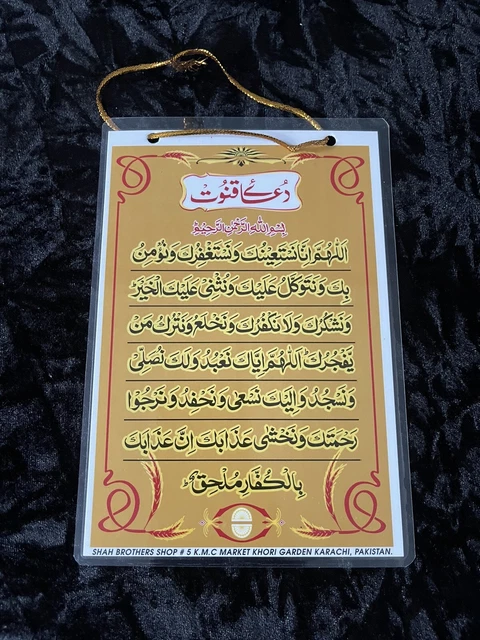 دُعَائے قنُوت
بِسْمِ اللهِ الرَّحْمٰنِ الرَّحِيْمِ
اَللّٰهُمَّ اِنَّا نَسْتَعِيْنُكَ وَنَسْتَغْفِرُكَ وَنُؤْمِنُ
بِكَ وَنَتَوَكَّلُ عَلَيْكَ وَنُثْنِىْ عَلَيْكَ الْخَيْرَ
وَنَشْكُرُكَ وَلَا نَكْفُرُكَ وَنَخْلَعُ وَنَتْرُكُ مَنْ
يَّفْجُرُكَ اَللّٰهُمَّ اِيَّاكَ نَعْبُدُ وَلَكَ نُصَلِّىْ
وَنَسْجُدُ وَاِلَيْكَ نَسْعٰى وَنَحْفِدُ وَنَرْجُوْا
رَحْمَتَكَ وَنَخْشٰى عَذَابَكَ اِنَّ عَذَابَكَ
بِالْكُفَّارِ مُلْحِقٌ
SHAH BROTHERS SHOP # 5 K.M.C MARKET KHORI GARDEN KARACHI, PAKISTAN.